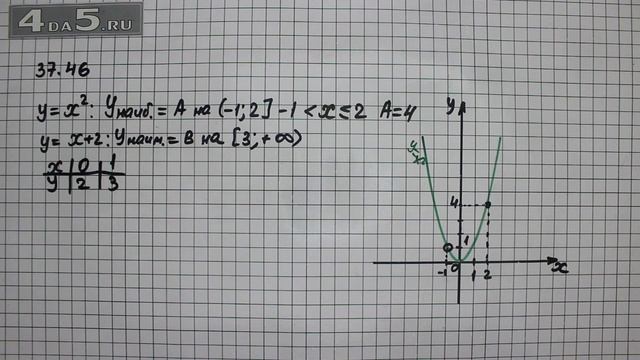 4DA5.RU
37.46
y=x²: Yнаиб.=A на (-1;2] -1<x≤2 A=4
y= x+2: Yнаим.=B на [3;+∞)
x | 0 | 1
y | 2 | 3
y
4
1
-1 0 1 2 x